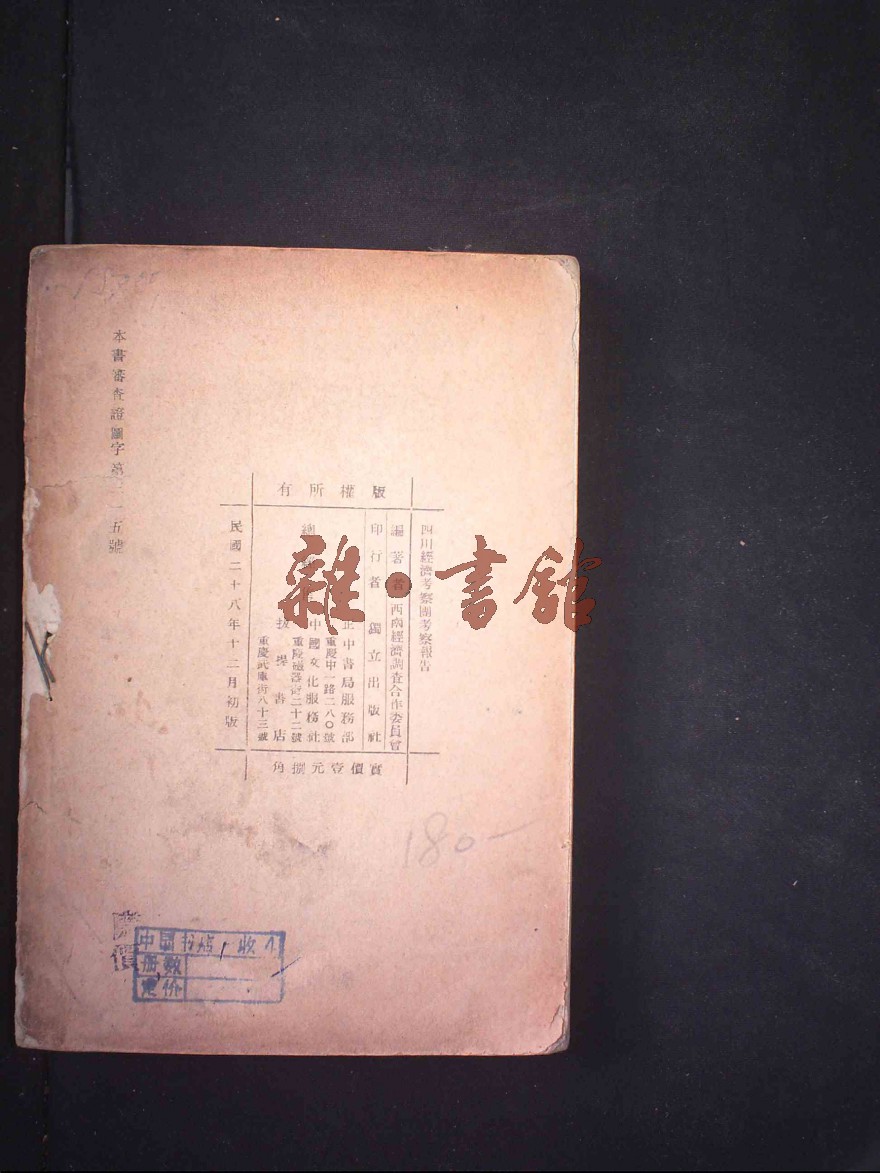 版權所有
四川經濟考察團考察報告
編著者 西南經濟調查合作委員會
印行者 獨立出版社
總
正中書局服務部
重慶中一路二八〇號
中國文化服務社
重慶磁器街二十二號
拔提書店
重慶武庫街八十三號
實價壹元捌角
民國二十八年十二月初版
本書審查證圖字第三一五號
雜·書館
180-
中国书店 收
册数
定价
價